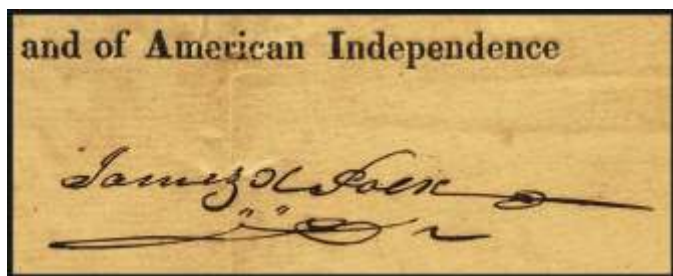 and of American Independence
James K Polk